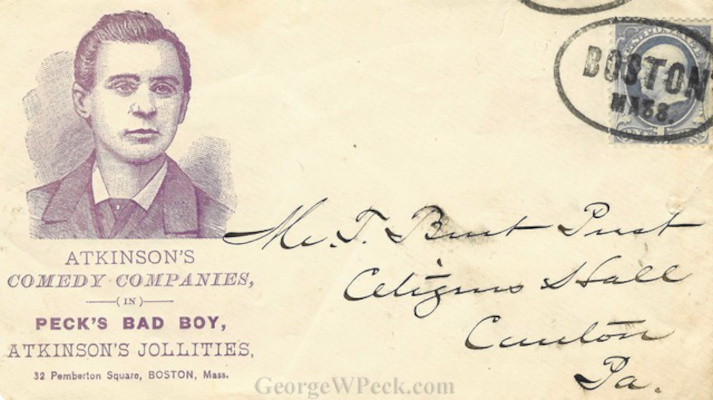 BOSTON
MASS.
Mr. T. Burt
Citizens Hall
Canton
Pa.
ATKINSON'S
COMEDY COMPANIES,
(IN)
PECK'S BAD BOY,
ATKINSON'S JOLLITIES,
32 Pemberton Square, BOSTON, Mass.
GeorgeWPeck.com